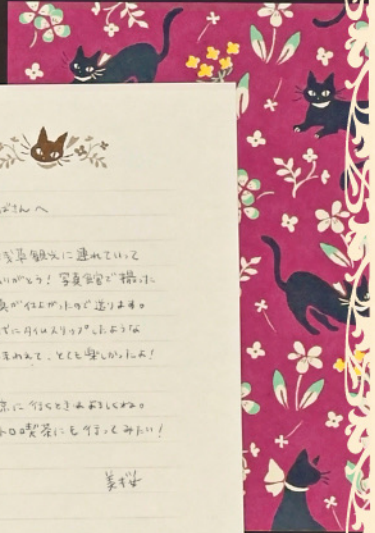 ばさんへ
浅草観光に連れていって
りがとう！写真館で撮った
真が仕上がったので送ります。
ずにタイムスリップしたような
まわれて、とても楽しかったよ！
京に行くときはよろしくね。
トロ喫茶にも行ってみたい！
美桜